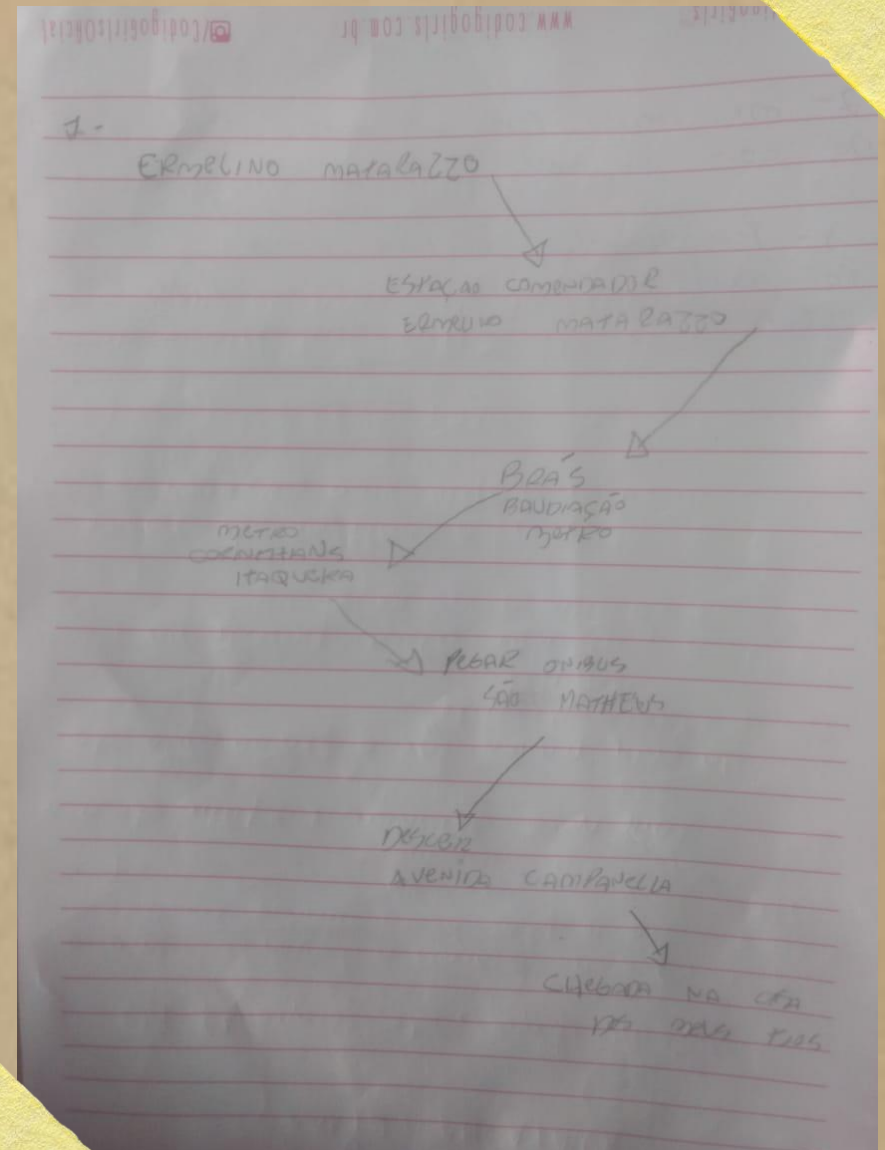 @/CodigoGirlsOficial
www.codigogirls.com.br
1-
ERMELINO MATARAZZO
ESTAÇÃO COMENDADOR
ERMELINO MATARAZZO
BRÁS
BAUDIAÇÃO
METRO
METRO
CORINTHANS
ITAQUERA
PEGAR ONIBUS
SÃO MATHEUS
DESCER
AVENIDA CAMPANELLA
CHEGADA NA CASA
DOS MEUS TIOS